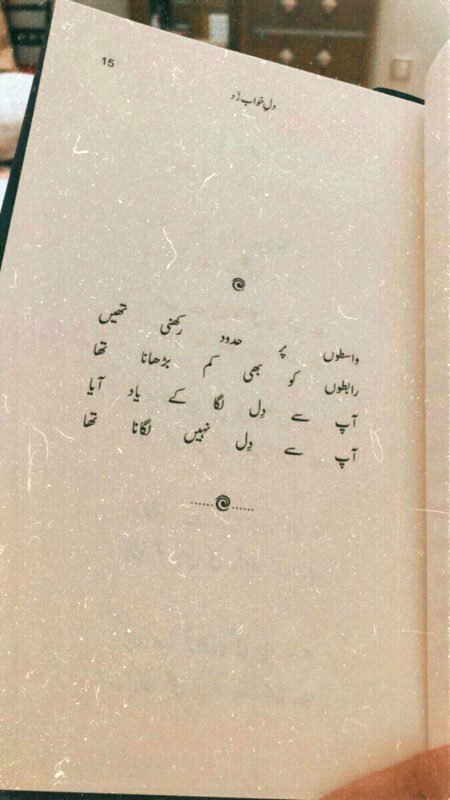 15
دلِ خواب زد
واسطوں پر حدود رکھنی تھیں
رابطوں کو بھی کم بڑھانا تھا
آپ سے دِل لگا کے یاد آیا
آپ سے دِل نہیں لگانا تھا